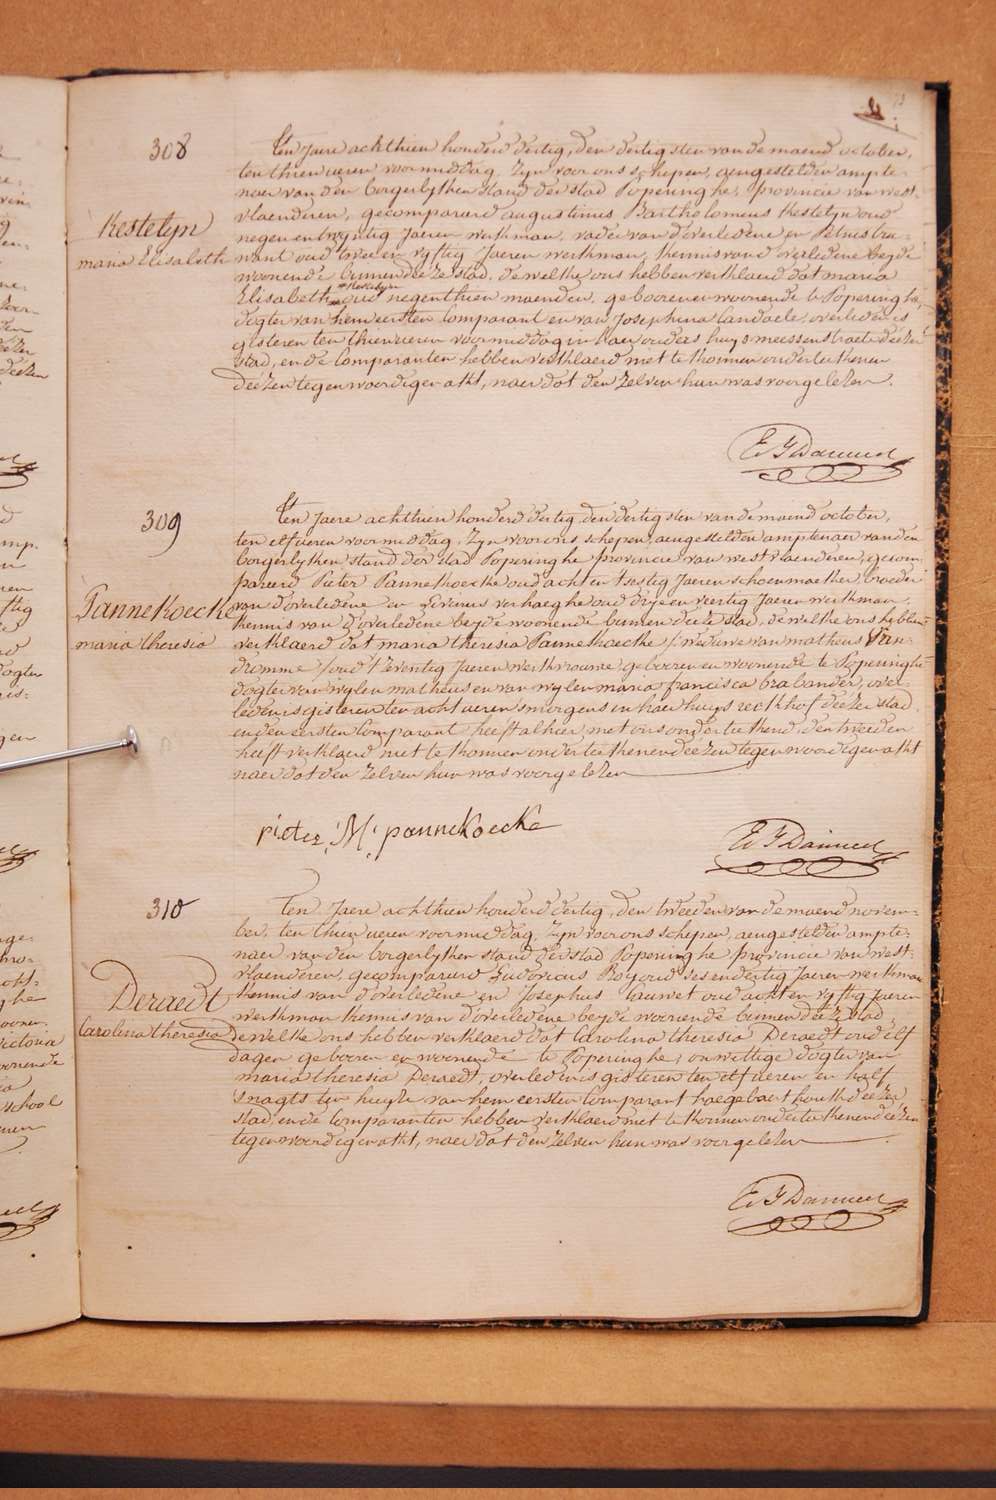 308
Kestelyn
maria Elisabeth
Ten Jaere achthien honderd dertig, den dertigsten van de maend october,
ten thien ueren voormiddag, Zyn voor ons schepen, aengestelden ampte-
naer van den borgerlyken stand der stad Poperinghe, provincie van west-
vlaenderen, gecompareerd augustinus Bartholomeus Kestelyn oud
negenentwyntig Jaeren werkman, vader van d'overledene en Petrus
oud en vyftig Jaeren werkman, kennis van d'overledene beyde
woonende binnen deeze stad, dewelke ons hebben verklaerd dat maria
Kestelyn
Elisabeth oud negenthien maenden, gebooren en woonende te Poperinghe,
dogter van hem eersten Comparant en van Josephina Candaele, overleden is
gisteren ten thien ueren voormiddag in haer ouders huys meessenstraete deezer
stad, en de Comparanten hebben verklaerd niet te konnen onderteekenen
deezen tegenwoordigen akt, naer dat den zelven hun was voorgelezen.
309
Pannekoecke
maria theresia
Ten Jaere achthien honderd dertig, den dertigsten van de maend october,
ten elf ueren voormiddag, Zyn voor ons schepen, aengestelden amptenaer van den
borgerlyken stand der stad Poperinghe provincie van westvlaenderen, gecom-
pareerd Pieter Pannekoecke oud acht en tsestig Jaeren schoenmaeker, broeder
van d'overledene en verhaeghe oud dryen veertig Jaeren werkman,
kennis van d'overledene beyde woonende binnen deeze stad, dewelke ons hebben
verklaerd dat maria theresia Pannekoecke / weduwe van matheus Van-
dromme / oud tzeventig Jaeren werkvrouwe, gebooren en woonende te Poperinghe
dogter van wylen matheus en van wylen maria francisca brabander, over-
leden is gisteren ten acht ueren smorgens in haer huys kerkhof deezer stad
en den eersten Comparant heeft alhier met ons onderteekend, den tweeden
heeft verklaerd niet te konnen onderteekenen deezen tegenwoordigen akt
naer dat den zelven hun was voorgelezen
pieter M. pannekoecke
310
Deraedt
Carolina theresia
Ten Jaere achthien honderd dertig, den tweeden van de maend novem-
ber, ten thien ueren voormiddag, Zyn voor ons schepen, aengestelden ampte-
naer van den borgerlyken stand der stad Poperinghe provincie van west-
vlaenderen, gecompareerd Ludovicus Boy oud ses en dertig Jaeren werkman
kennis van d'overledene en Josephus Cauwet oud acht en vyftig Jaeren
werkman kennis van d'overledene beyde woonende binnen deeze stad,
dewelke ons hebben verklaerd dat Carolina theresia Deraedt oud elf
dagen gebooren en woonende te Poperinghe, onwettige dogter van
maria theresia Deraedt, overleden is gisteren ten elf ueren en half
snagts ten huyze van hem eersten Comparant haegebaerthouck deezer
stad, en de Comparanten hebben verklaerd niet te konnen onderteekenen deezen
tegenwoordigen akt, naer dat den zelven hun was voorgelezen